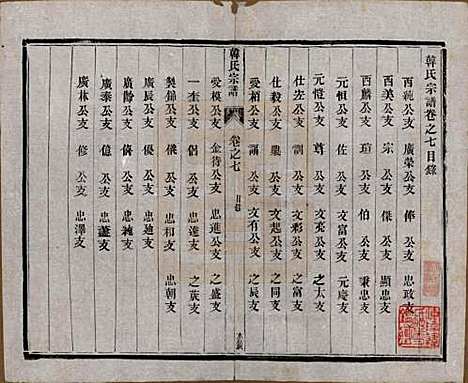 韓氏宗譜卷之七目錄
西純公支 廣榮公支 俸公支 忠政支
西美公支 宗公支 傑公支 顯忠支
西麟公支 瑄公支 伯公支 秉忠支
元恒公支 佐公支 元慶支
元愷公支 尊公支 之太支
仕左公支 訓公支 文彩公支 之富支
仕毅公支 公支 文起公支 之同支
愛栢公支 公支 文有公支 之辰支
韓氏宗譜 卷之七 目錄
愛模公支 金待公支 忠進公支 之盛支
一奎公支 儀公支 忠進支 之荻支
製錦公支 俊公支 忠朝支
廣辰公支 俱公支 忠迪支
廣餘公支 僑公支 忠純支
廣泰公支 儉公支 忠謐支
廣林公支 修公支 忠澤支